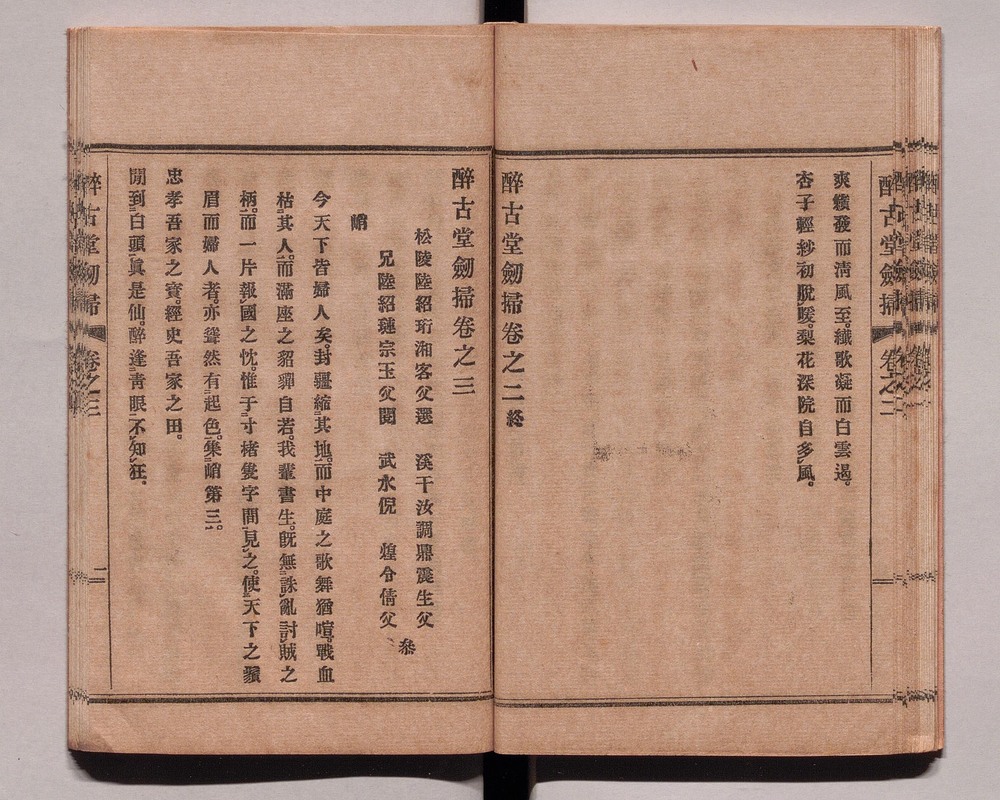 醉古堂劒掃 卷之二
爽籟發而淸風至。纖歌凝而白雲遏。
杏子輕紗初脫暖。梨花深院自多風。
醉古堂劒掃卷之二終
醉古堂劒掃卷之三
松陵陸紹珩湘客父選 溪干汝調鼎震生父
兄陸紹璉宗玉父閱 武水倪 煌令倩父
參
峭
今天下皆婦人矣。封疆縮其地。而中庭之歌舞猶喧。戰血
枯其人。而滿座之貂蟬自若。我輩書生。旣無誅亂討賊之
柄。而一片報國之忱。惟于寸楮隻字間見之。使天下之鬚
眉而婦人者。亦聳然有起色。集峭第三。
忠孝吾家之寶。經史吾家之田。
閒到白頭眞是仙。醉逢靑眼不知狂。
醉古堂劒掃 卷之三 一